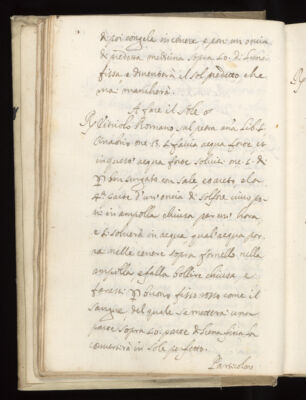 di poi congela in cenere e poni un oncia
di detta medicina sopra 40. di Luna
fissa e diventerà il Sol perfetto e che
mai mancherà.
A fare il Sole
Vitriolo Romano sal petra ana lib. 1.
Cinabrio one. 13. fa acqua forte et
in questa acqua forte solvi one. 1. di
ben purgato con sale e aceto, e la
4.ª parte d'un'oncia di Solfo vivo, po
ni in ampolla chiusa per un'hora
e si solverà in acqua qual acqua por
rai nelle cenere sopra fornello nella
ampolla e falla bollire chiusa e
farassi buono fisso rosso come il
Sangue del quale se metterai una
parte sopra 40. parte di Luna fina la
convertirà in Sole perfetto.